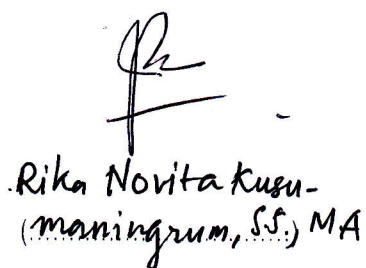 Rika Novita Kusu-
(maningrum, SS.) MA